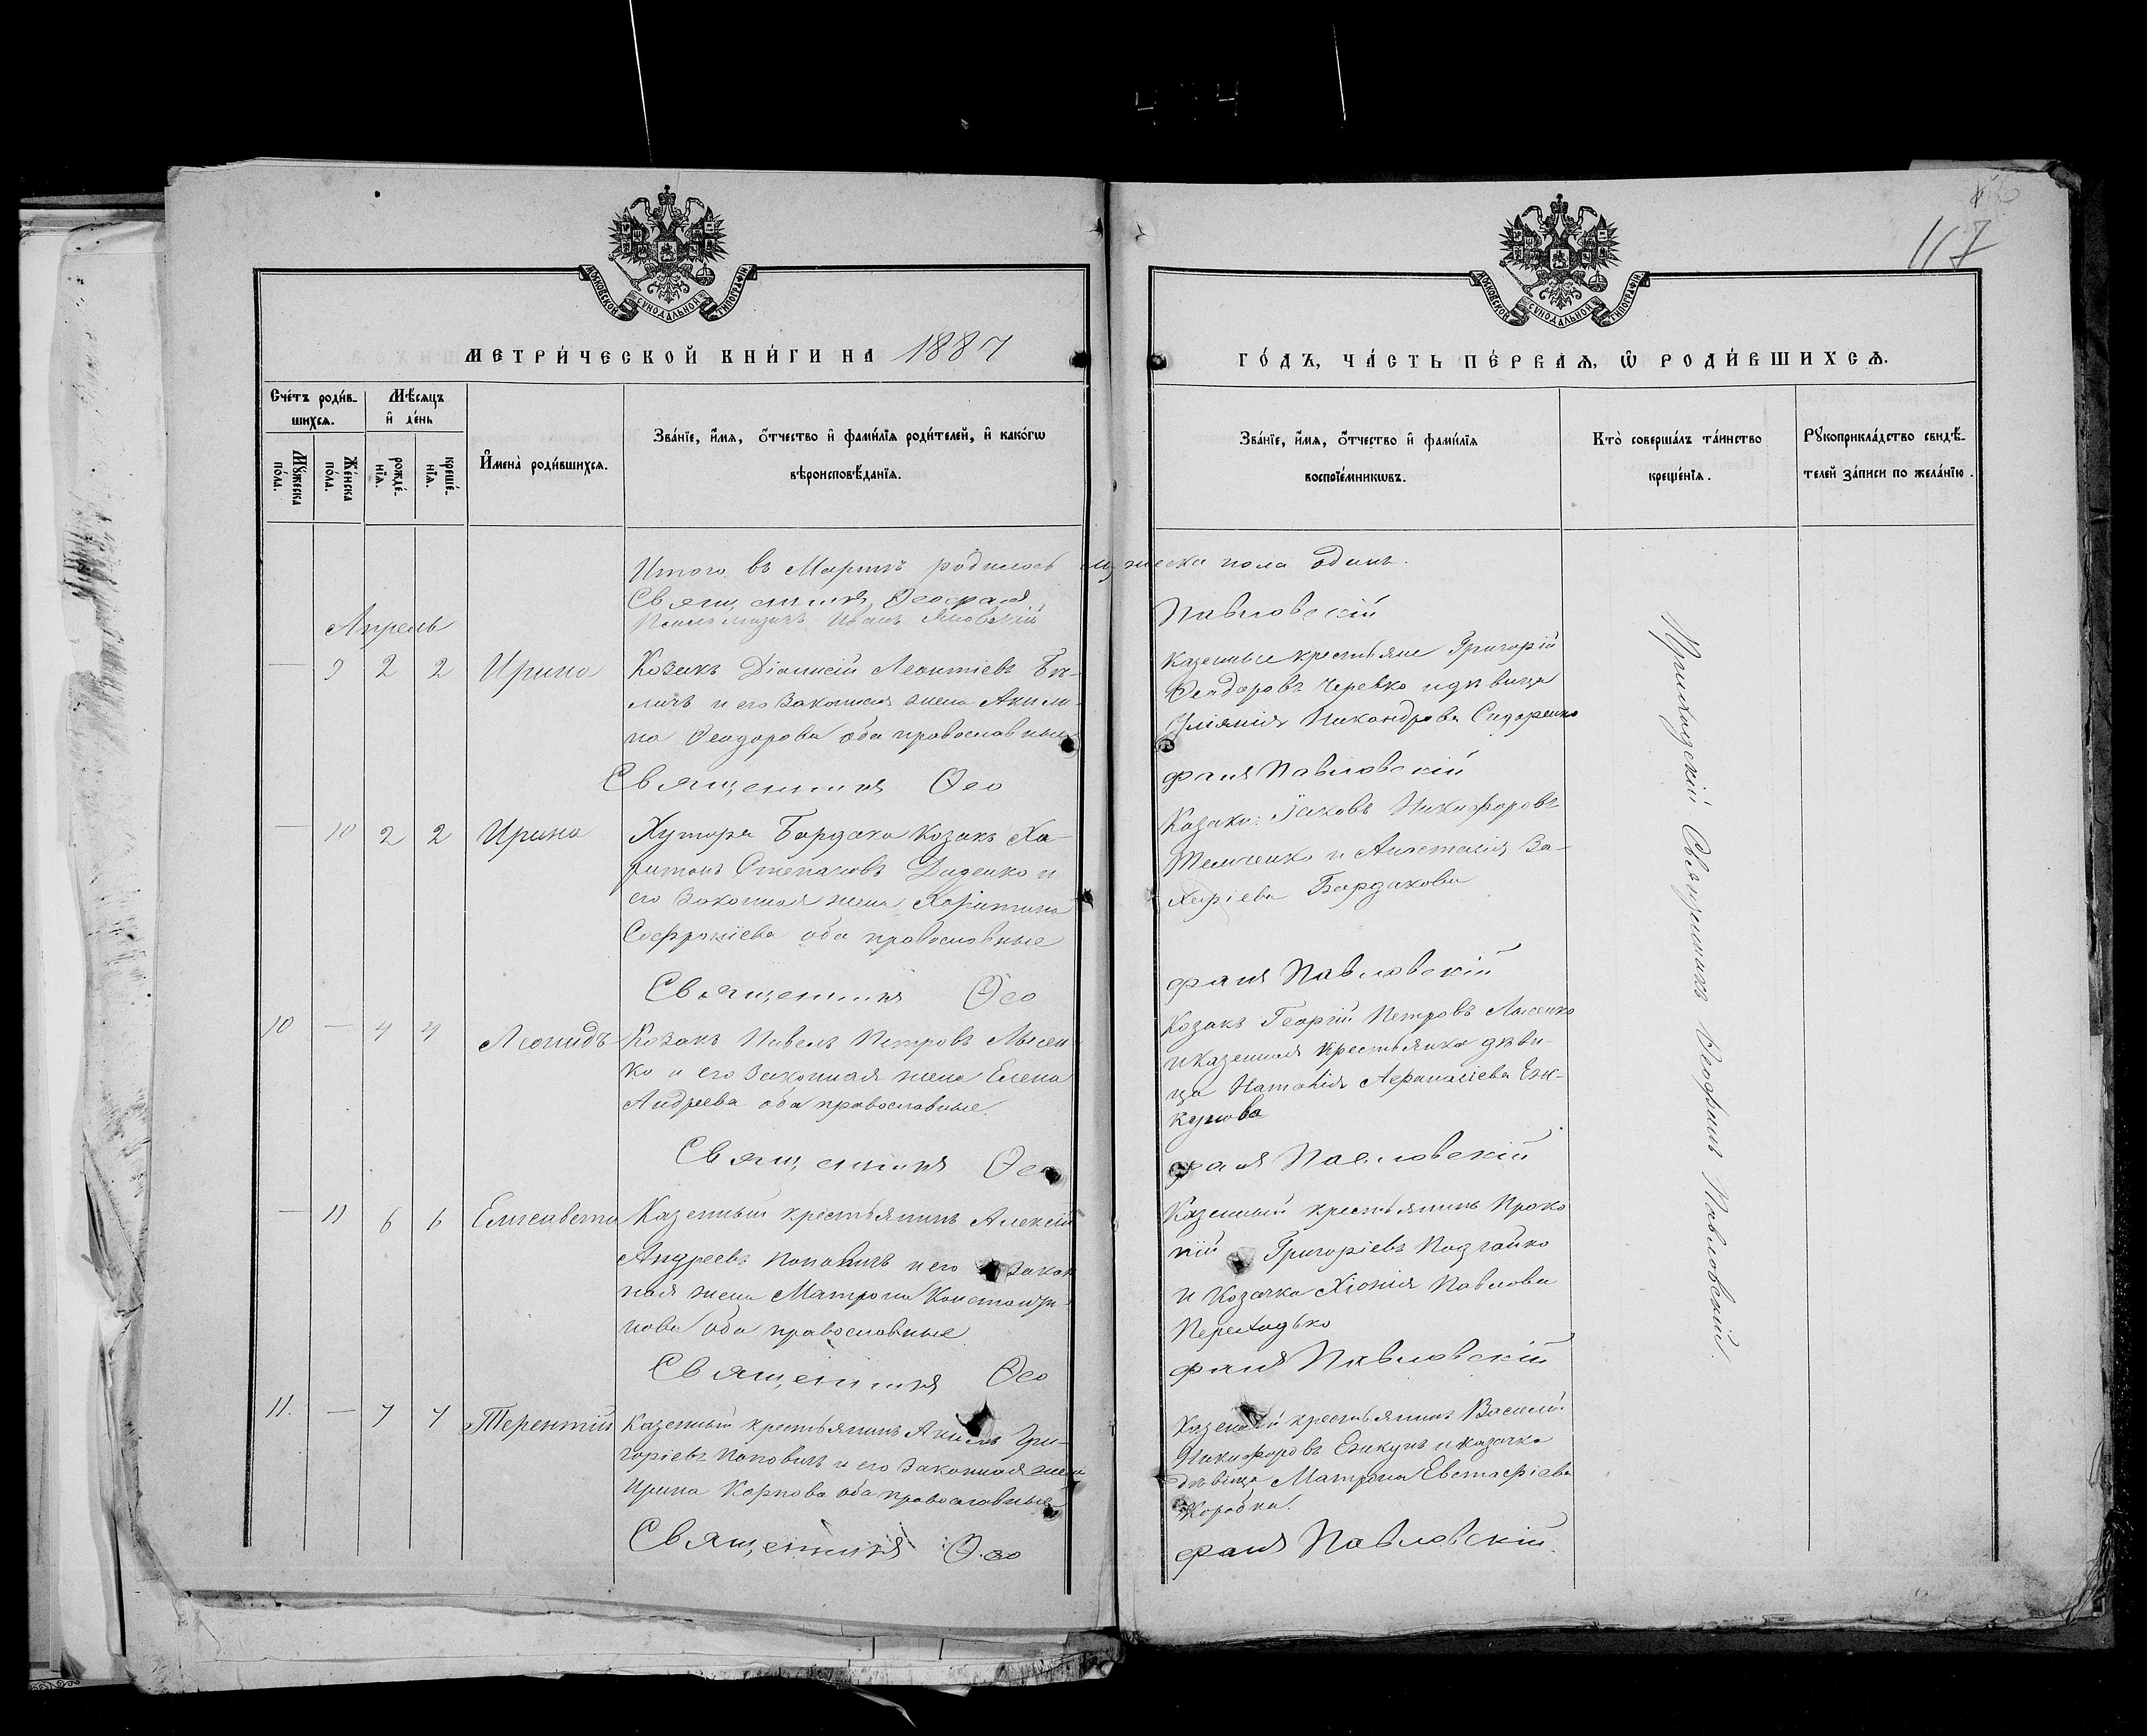 117
МОСКОВСКОЙ СѴНОДАЛЬНОЙ ТИПОГРАФІИ
МОСКОВСКОЙ СѴНОДАЛЬНОЙ ТИПОГРАФІИ
МЕТРИ́ЧЕСКОЙ КНИ́ГИ НА 1887
ГО́ДЪ, ЧА́СТЬ ПЕ́РВАѦ, Ѽ РОДИ́ВШИХСѦ.
Сче́тъ роди́в-
шихсѧ.
Мѣ́сѧцъ
и҆ де́нь
Мꙋ́жеска
по́ла.
Же́нска
по́ла.
рожде́-
нїѧ.
креще́-
нїѧ.
И҆мена̀ роди́вшихсѧ.
Зва́нїе, и҆́мѧ, ѻ҆́тчество и҆ фами́лїѧ роди́телей, и҆ како́гѡ
вѣроисповѣ́данїѧ.
Зва́нїе, и҆́мѧ, ѻ҆́тчество и҆ фами́лїѧ
воспрїе́мникѡвъ.
Кто̀ соверша́лъ та́инство
креще́нїѧ.
Рꙋкоприкла́дство свидѣ́-
телей за́писи по жела́нїю.
Итого въ Мартѣ родилось мужеска пола одинъ.
Священникъ Ѳеофанъ Павловскій
Псаломщикъ Иванъ Яновскій
Апрель
— 9 2 2 Ирина
Козакъ Діонисій Леонтіевъ Бѣ-
личъ и его законная жена Акили-
на Ѳеодорова оба православные
Казенные крестьяне Григорій
Ѳеодоровъ Черевко и дѣвица
Уліянія Никандрова Сидоренко
Священникъ Ѳеофанъ Павловскій
— 10 2 2 Ирина
Хутора Бардака козакъ Ха-
ритонъ Степановъ Диденко и
его законная жена Харитина
Софроніева оба православные
Козаки: Іаковъ Никифоровъ
Темченко и Анастасія За-
харіева Бардакова
Священникъ Ѳеофанъ Павловскій
10 — 4 4 Леонидъ
Козакъ Павелъ Петровъ Лысен-
ко и его законная жена Елена
Андреева оба православные.
Козакъ Георгій Петровъ Лысенко
и казенная крестьянка дѣви-
ца Наталія Аѳанасіева Ени-
кунова
Священникъ Ѳеофанъ Павловскій
— 11 6 6 Елисавета
Казенный крестьянинъ Алексій
Андреевъ Поповичъ и его закон
ная жена Матрона Константи-
нова оба православные
Казенный крестьянинъ Проко
пій Григоріевъ
и козачка Хіонія Павлова
Переходько
Священникъ Ѳеофанъ Павловскій
11. — 7 7 Терентій
Казенный крестьянинъ Акимъ Гри-
горіевъ Поповичъ и его законная жена
Ирина Карпова оба православные
Казенный крестьянинъ Василій
Никифоровъ и казачка
дѣвица Матрона Евстафіева
Священникъ Ѳеофанъ Павловскій.
Приходскій Священникъ Ѳеофанъ Павловскій